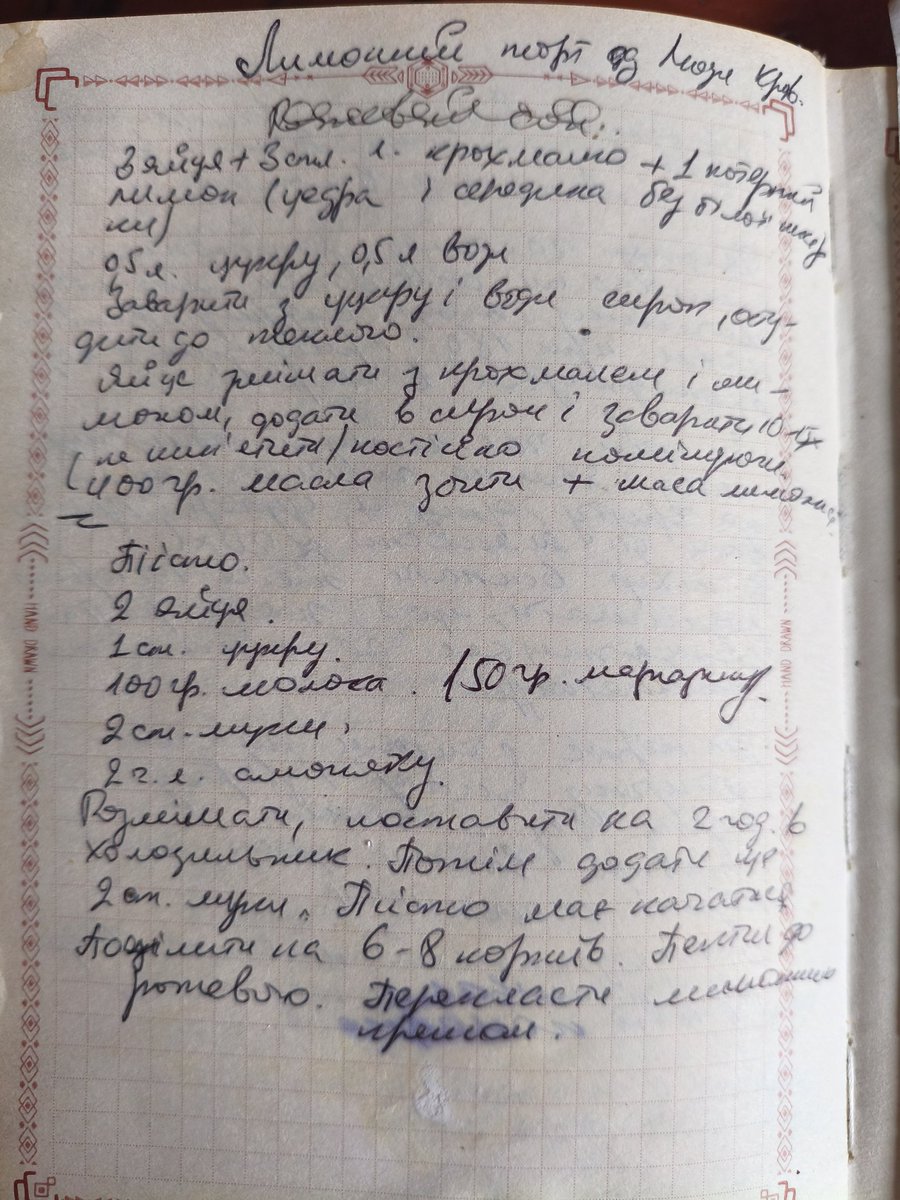 Лимонний торт від Люди Кров.
3 яйця + 3 стл. л. крохмалю + 1 потертий
лимон (цедра і середина без білої шку
ки)
0,5 л. цукру, 0,5 л води
Заварити з цукру і води сироп, осту-
дити до теплого.
Яйце змішати з крохмалем і ли-
моном, додати в сироп і заварити 10 хв
(не кип'ятити) постійно помішуючи
400 гр. масла збити + маса лимонна
Тісто.
2 яйця.
1 ст. цукру.
100 гр. молока. 150 гр. маргарину.
2 ст. муки.
2 ч. л. амоняку.
Розмішати, поставити на 2 год. в
холодильник. Потім додати ще
2 ст. муки. Тісто має качатись
Поділити на 6-8 коржів. Пекти до
рожевого. Перекласти лимонним
кремом.
HAND DRAWN
HAND DRAWN